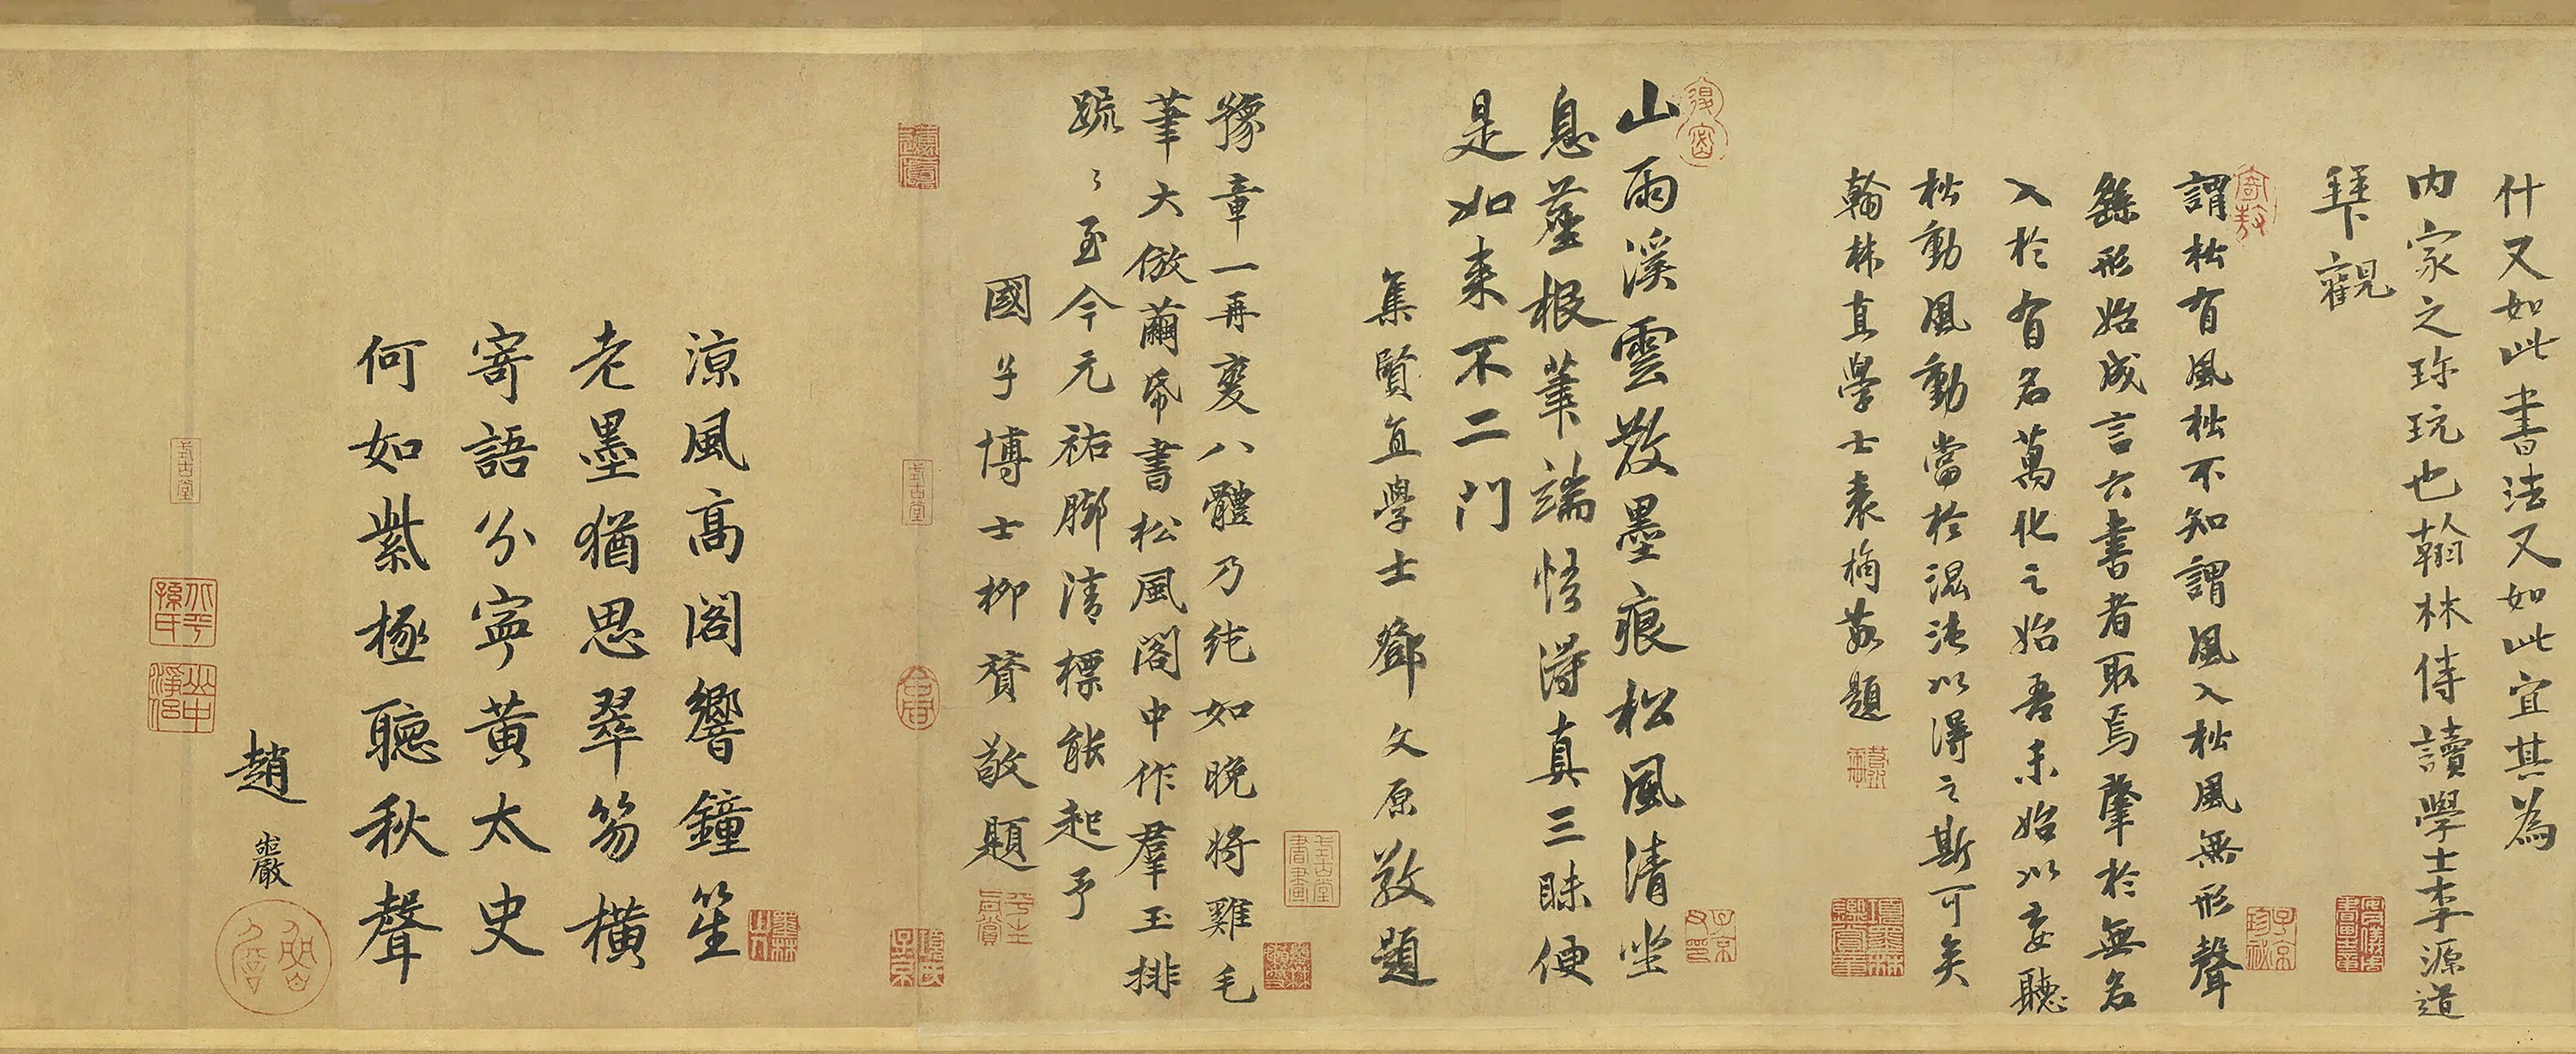 什又如此書法又如此宜其為
内家之珎玩也翰林侍讀學士李源道
拜觀
謂松有風松不知謂風入松風無形聲
繇形始成言六書者取焉肇於無名
入於有名萬化之始吾未始以妄聽
松動風動當於混沌以得之斯可矣
翰林直學士袁桷敬題
山雨溪雲散墨痕松風清坐
息塵根筆端悟得真三昧便
是如来不二門
集賢直學士鄧文原敬題
豫章一再變八體乃純如晚将雞毛
筆大倣繭帋書松風閣中作羣玉排
疏〻至今元祐脚清標能起予
國子博士柳贯敬題
涼風高閣響鐘笙
老墨猶思翠笏橫
寄語分寧黃太史
何如紫極聽秋聲
趙巖